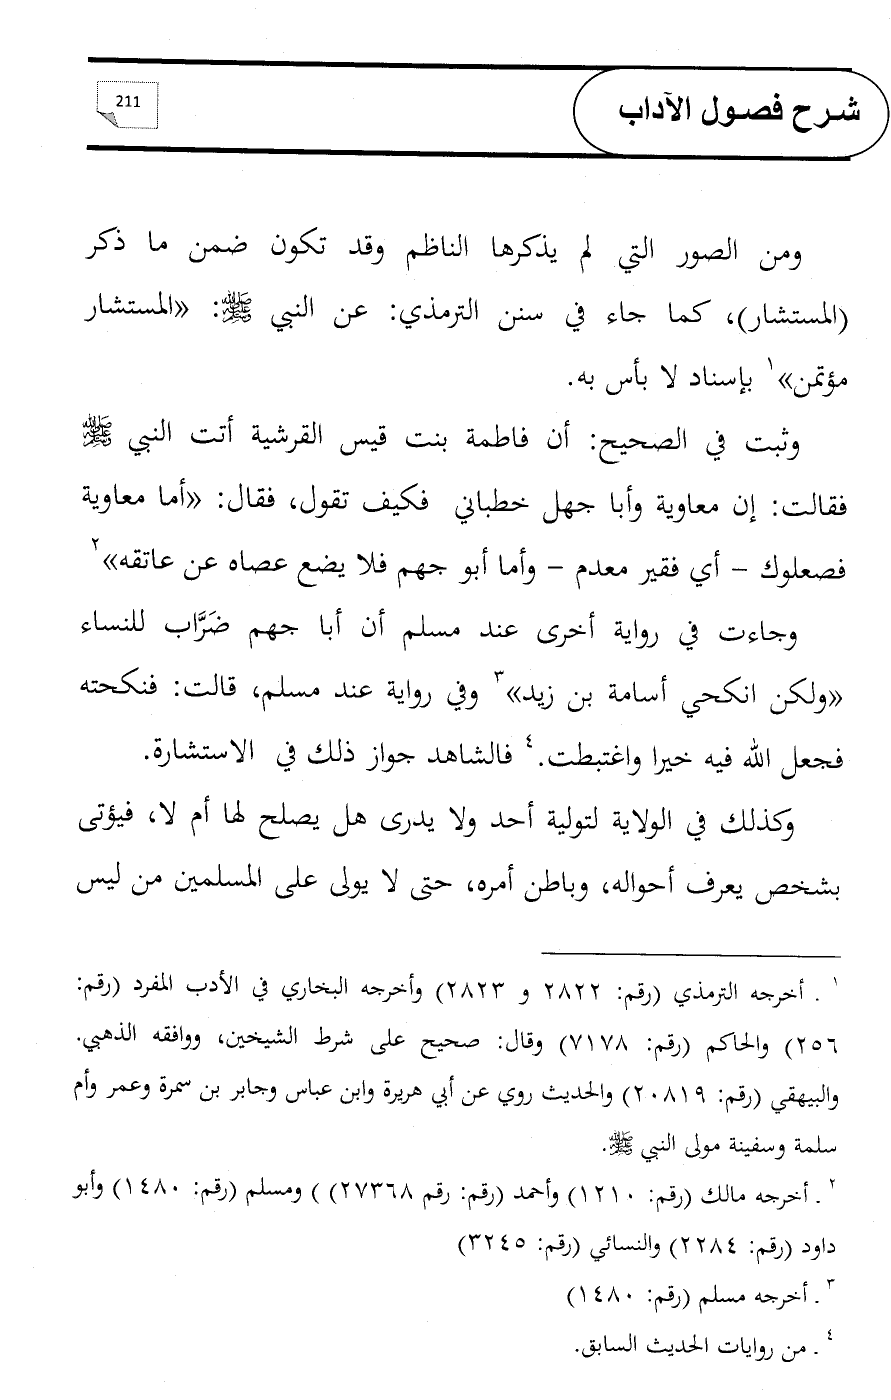 شرح فصول الآداب
211
ومن الصور التي لم يذكرها الناظم وقد تكون ضمن ما ذكر
(المستشار)، كما جاء في سنن الترمذي: عن النبي ﷺ: «المستشار
مؤتمن»١ بإسناد لا بأس به.
وثبت في الصحيح: أن فاطمة بنت قيس القرشية أتت النبي ﷺ
فقالت: إن معاوية وأبا جهل خطباني فكيف تقول، فقال: «أما معاوية
فصعلوك – أي فقير معدم – وأما أبو جهم فلا يضع عصاه عن عاتقه»٢
وجاءت في رواية أخرى عند مسلم أن أبا جهم ضَرَّاب للنساء
«ولكن انكحي أسامة بن زيد»٣ وفي رواية عند مسلم، قالت: فنكحته
فجعل الله فيه خيرا واغتبطت.٤ فالشاهد جواز ذلك في الاستشارة.
وكذلك في الولاية لتولية أحد ولا يدرى هل يصلح لها أم لا، فيؤتى
بشخص يعرف أحواله، وباطن أمره، حتى لا يولى على المسلمين من ليس
١ . أخرجه الترمذي (رقم: ٢٨٢٢ و ٢٨٢٣) وأخرجه البخاري في الأدب المفرد (رقم:
٢٥٦) والحاكم (رقم: ٧١٧٨) وقال: صحيح على شرط الشيخين، ووافقه الذهبي.
والبيهقي (رقم: ٢٠٨١٩) والحديث روي عن أبي هريرة وابن عباس وجابر بن سمرة وعمر وأم
سلمة وسفينة مولى النبي ﷺ.
٢ . أخرجه مالك (رقم: ١٢١٠) وأحمد (رقم: رقم ٢٧٣٦٨) ) ومسلم (رقم: ١٤٨٠) وأبو
داود (رقم: ٢٢٨٤) والنسائي (رقم: ٣٢٤٥)
٣ . أخرجه مسلم (رقم: ١٤٨٠)
٤ . من روايات الحديث السابق.